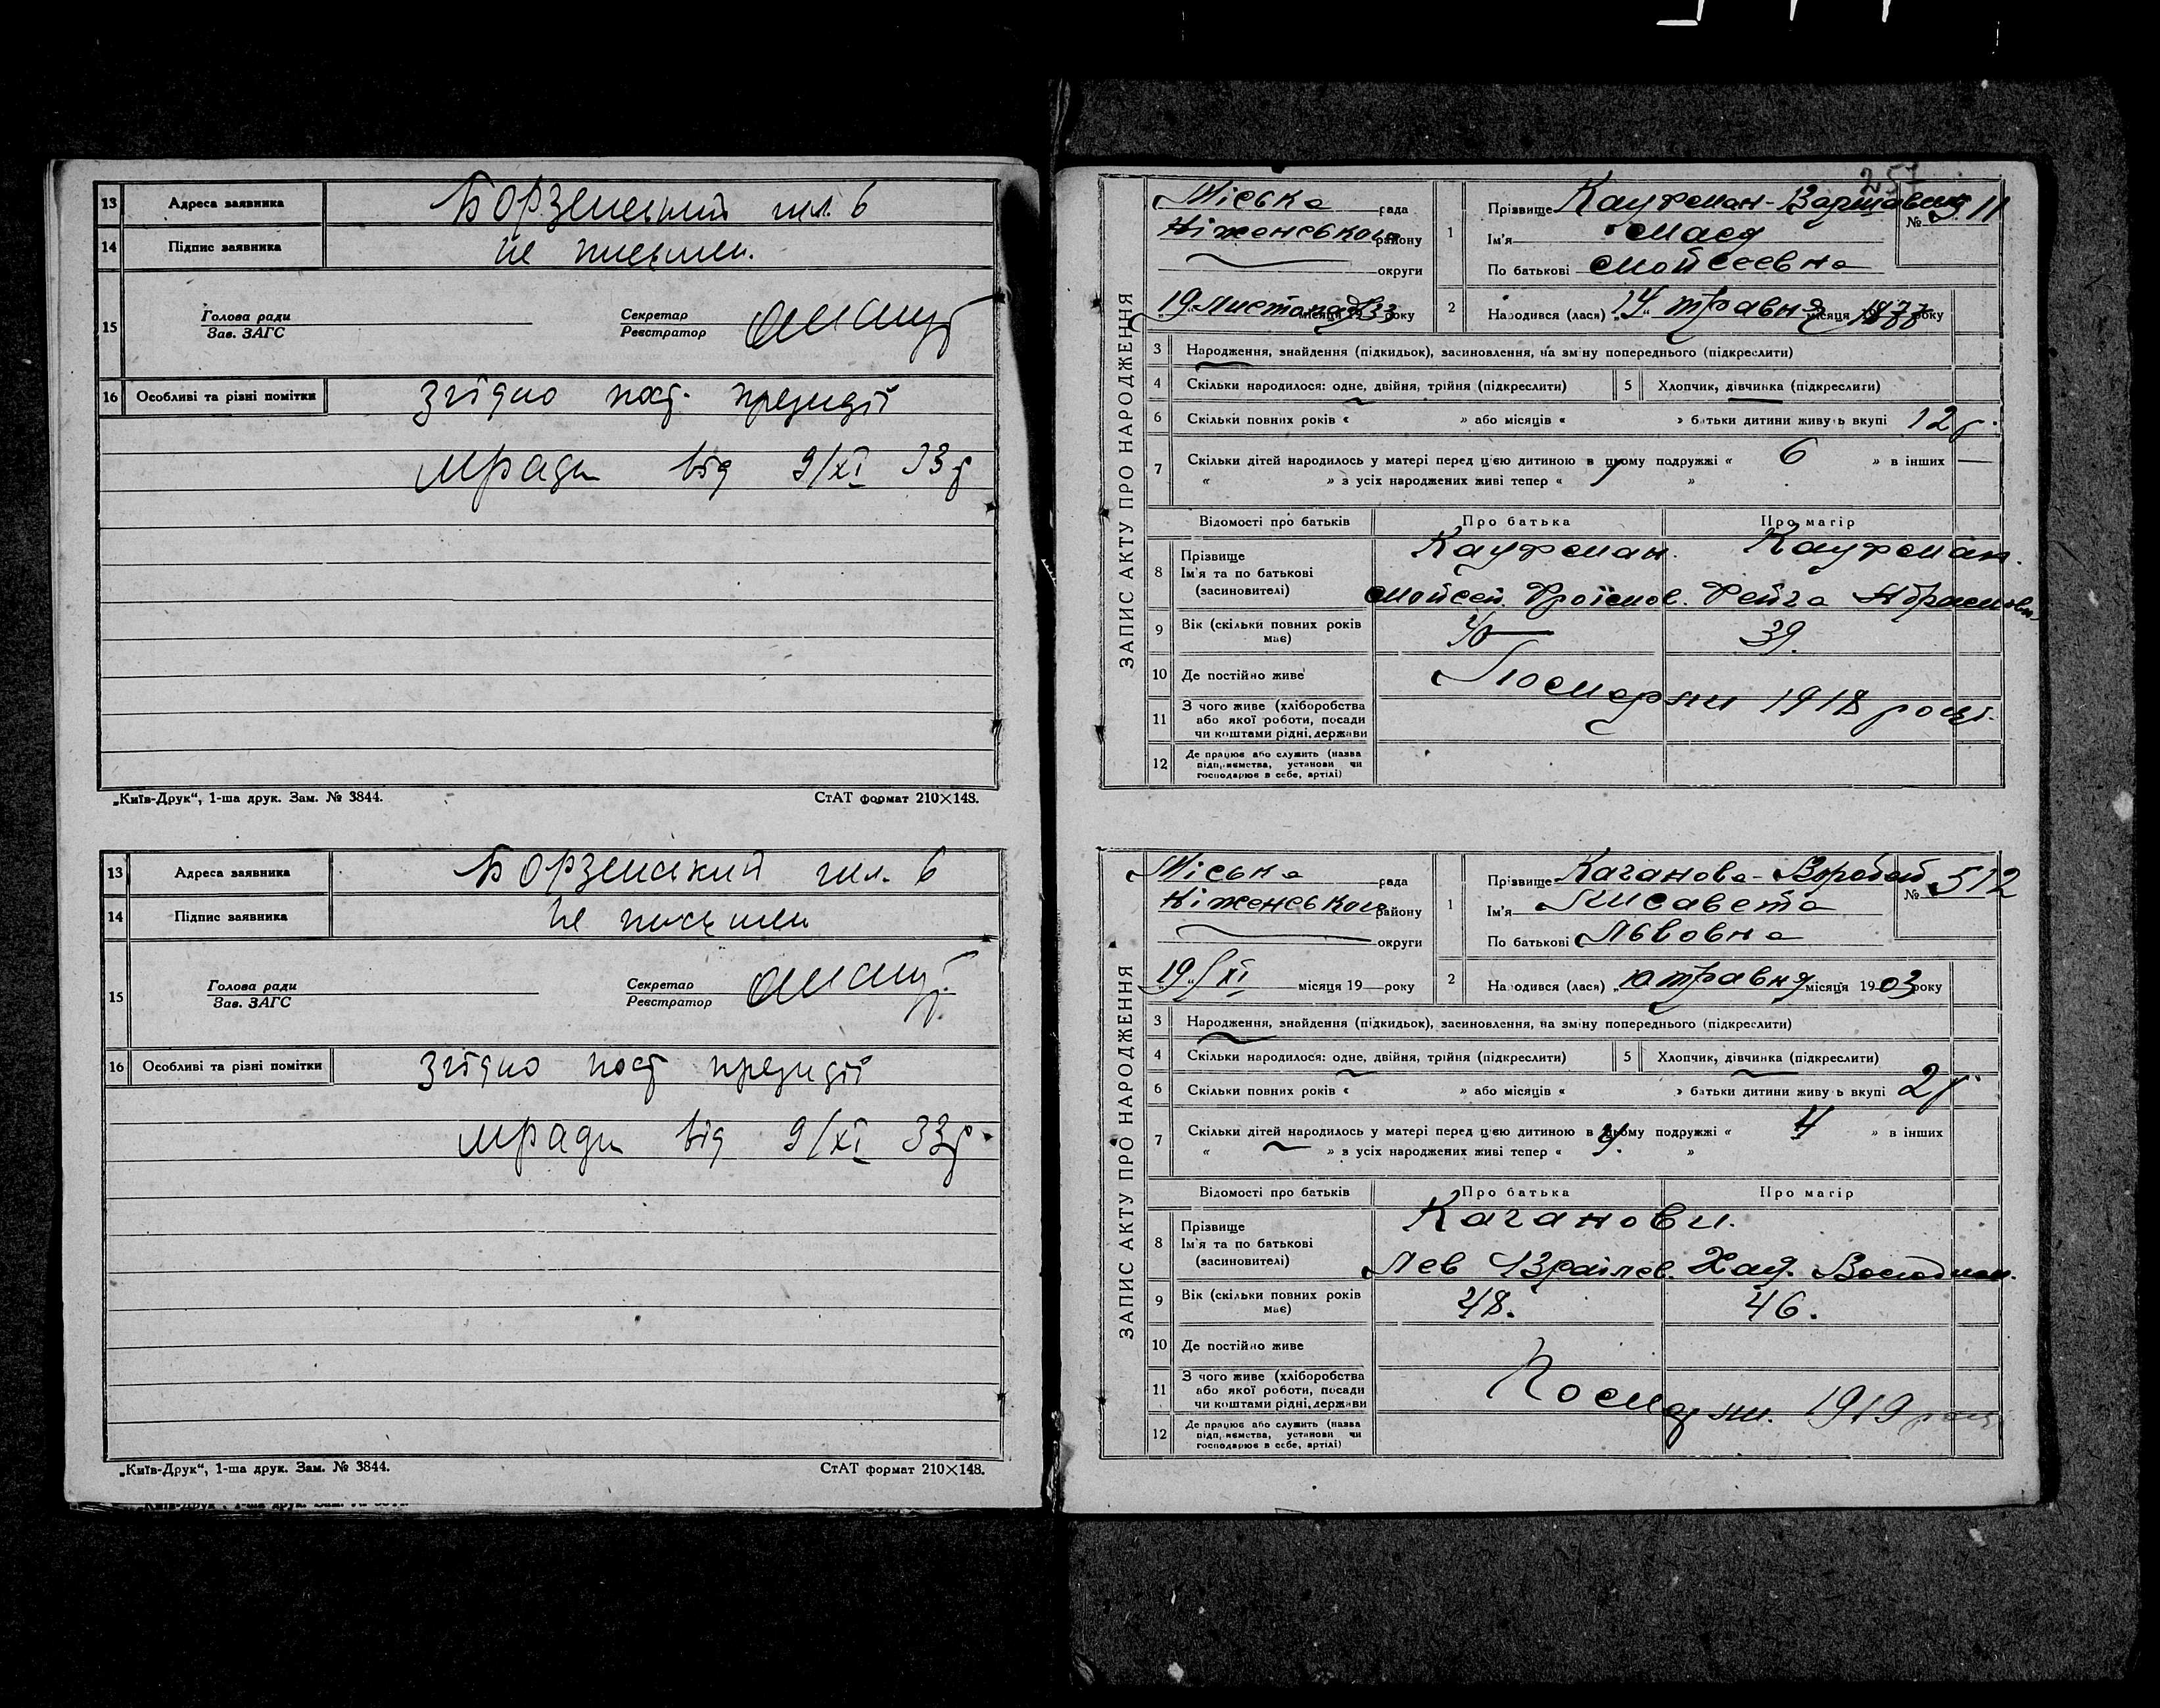 13 Адреса заявника Борзенський шл. 6
14 Підпис заявника не письмен.
15 Голова ради
Зав. ЗАГС
Секретар
Реєстратор
16 Особливі та різні помітки Згідно пост. президії
мради від 9/XI 33 р
„Київ-Друк“, 1-ша друк. Зам. № 3844. СтАТ формат 210×148.
13 Адреса заявника Борзенський шл. 6
14 Підпис заявника не письмен
15 Голова ради
Зав. ЗАГС
Секретар
Реєстратор
16 Особливі та різні помітки Згідно пост президії
мради від 9/XI 33 р.
„Київ-Друк“, 1-ша друк. Зам. № 3844. СтАТ формат 210×148.
257
ЗАПИС АКТУ ПРО НАРОДЖЕННЯ
Міська рада
Ніженського району
округи
19 Листопад 33 року
1 Прізвище Кауфман-Варшавськ № 511
Ім'я Мася
По батькові Мойсеевна
2 Народився (лася) „14“ травня місяця 1877 року
3 Народження, знайдення (підкидьок), засиновлення, на зміну попереднього (підкреслити)
4 Скільки народилося: одне, двійня, трійня (підкреслити) 5 Хлопчик, дівчинка (підкреслити)
6 Скільки повних років « » або місяців « » батьки дитини живуть вкупі 12 р.
7 Скільки дітей народилось у матері перед цією дитиною в цьому подружжі « 6 » в інших —
« » з усіх народжених живі тепер « »
Відомості про батьків Про батька Про матір
8 Прізвище Кауфман. Кауфман.
Ім'я та по батькові
(засиновителі) Мойсей Фроїмов. Фейга Абрамовн
9 Вік (скільки повних років має) 40 39.
10 Де постійно живе Посмерти 1918 році.
11 З чого живе (хліборобства
або якої роботи, посади
чи коштами рідні, держави
12 Де працює або служить (назва
підприємства, установи чи
господарює в себе, артілі)
ЗАПИС АКТУ ПРО НАРОДЖЕННЯ
Міська рада
Ніженського району
округи
19/XI місяця 19 року
1 Прізвище Каганова-Воробей № 512
Ім'я Лисавета
По батькові Львовна
2 Народився (лася) „10 травня місяця 1903 року
3 Народження, знайдення (підкидьок), засиновлення, на зміну попереднього (підкреслити)
4 Скільки народилося: одне, двійня, трійня (підкреслити) 5 Хлопчик, дівчинка (підкреслити)
6 Скільки повних років « » або місяців « » батьки дитини живуть вкупі
7 Скільки дітей народилось у матері перед цією дитиною в цьому подружжі « 4 » в інших
« » з усіх народжених живі тепер « 4. »
Відомості про батьків Про батька Про матір
8 Прізвище Каганови.
Ім'я та по батькові
(засиновителі) Лев Ізраїлев.
9 Вік (скільки повних років має) 48. 46.
10 Де постійно живе
11 З чого живе (хліборобства
або якої роботи, посади
чи коштами рідні, держави
Посмерти. 1919 році
12 Де працює або служить (назва
підприємства, установи чи
господарює в себе, артілі)